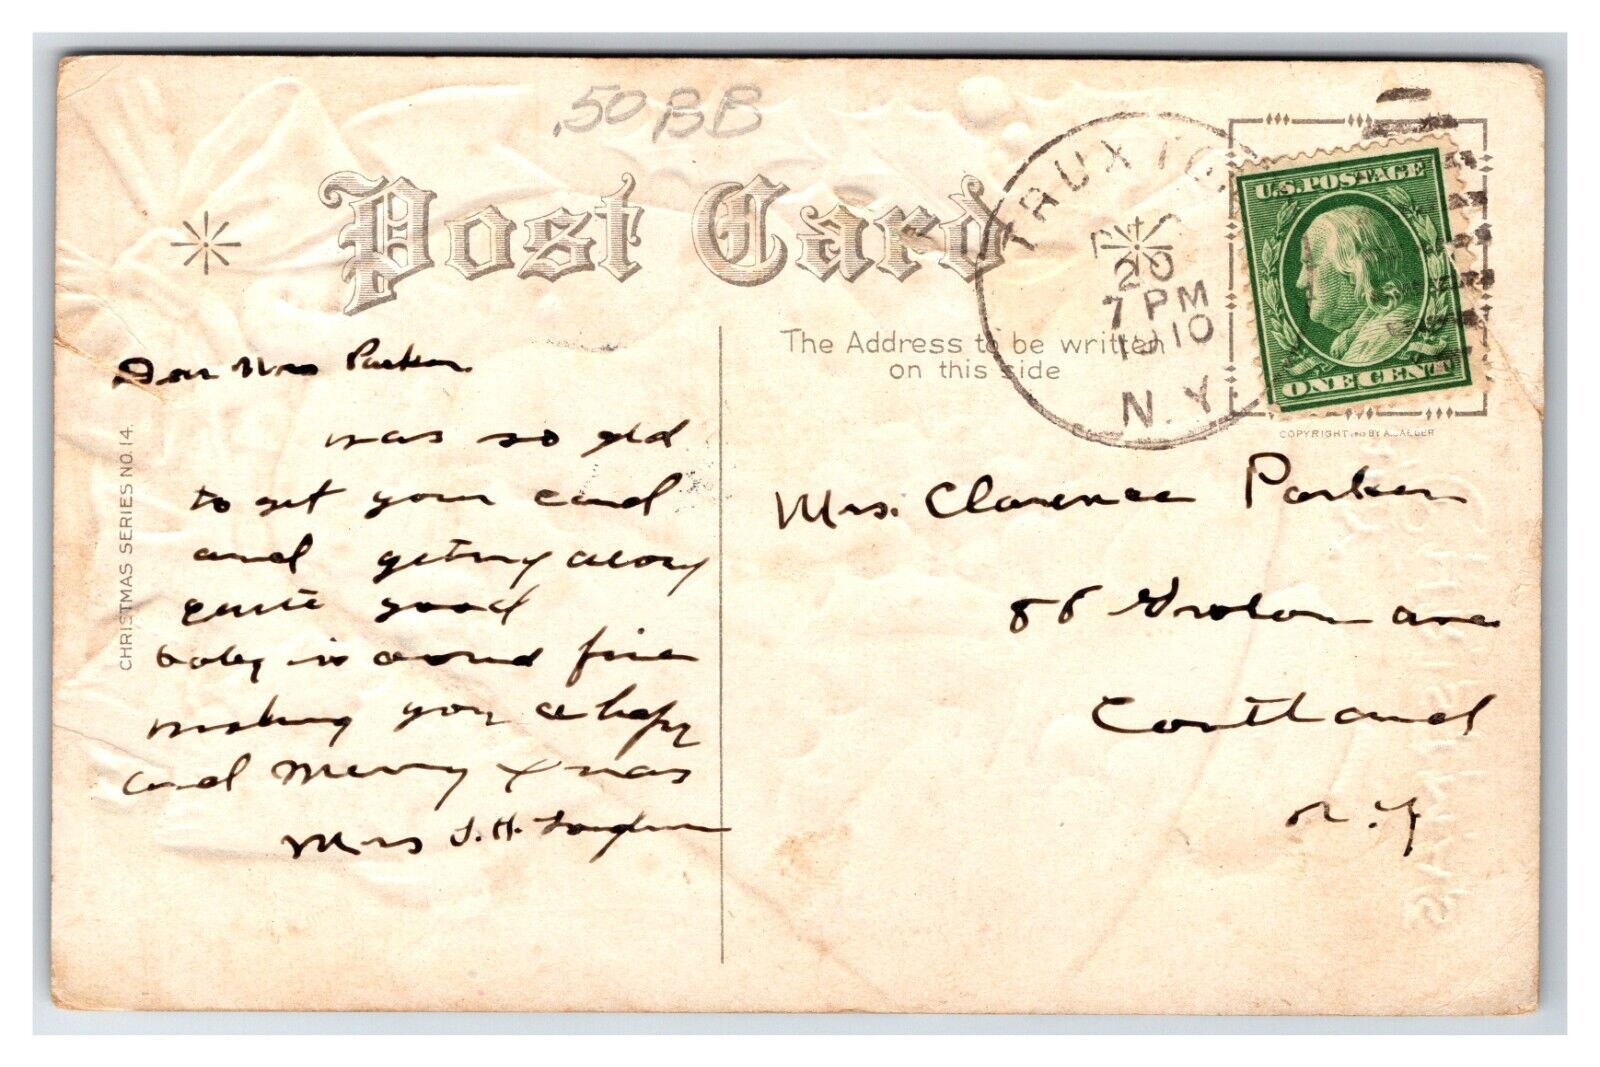 .50 BB
Post Card
TRUXTON
20
7 PM
1910
N.Y.
U.S. POSTAGE
ONE CENT
The Address to be written
on this side
COPYRIGHT BY A. JAEGER
CHRISTMAS SERIES NO. 14.
Dear Mrs Parker
was so glad
to get your card
and getting along
quite good
baby is around fine
making you a happy
and Merry Xmas
Mrs J. H.
Mrs. Clarence Parker
86 Groton ave
Cortland
N. Y
CHRISTMAS